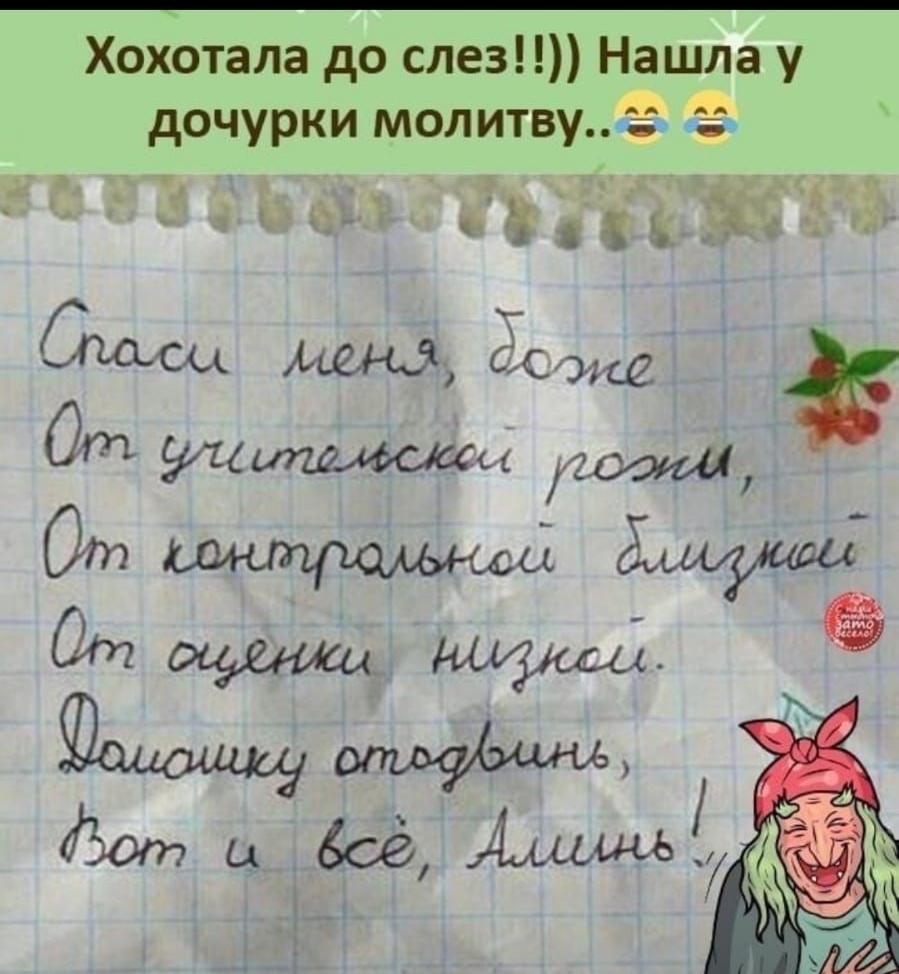 Хохотала до слез!!)) Нашла у
дочурки молитву..😂 😂
Спаси меня, боже
От учительской рожи,
От контрольной близкой
От оценки низкой.
Домашку отодвинь,
Вот и всё, Аминь!
зато
весело!